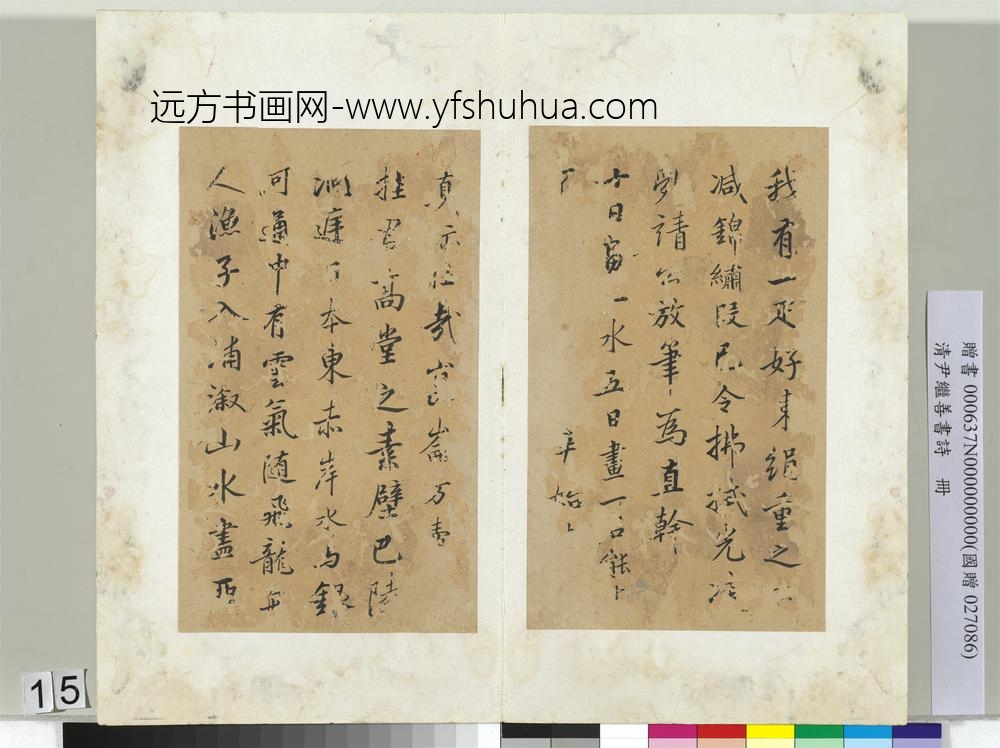 远方书画网-www.yfshuhua.com
我有一疋好東絹重之
減錦繡段已令拂拭光凌
請公放筆為直幹
十日畫一水五日畫一石能
真
壯哉崑崙方壺
挂君高堂之素壁巴陵
洞庭日本東赤岸水与銀
河通中有雲氣随飛龍舟
人漁子入浦漵山水盡
贈書 000637N000000000(國贈 027086)
清尹繼善書詩 冊
15